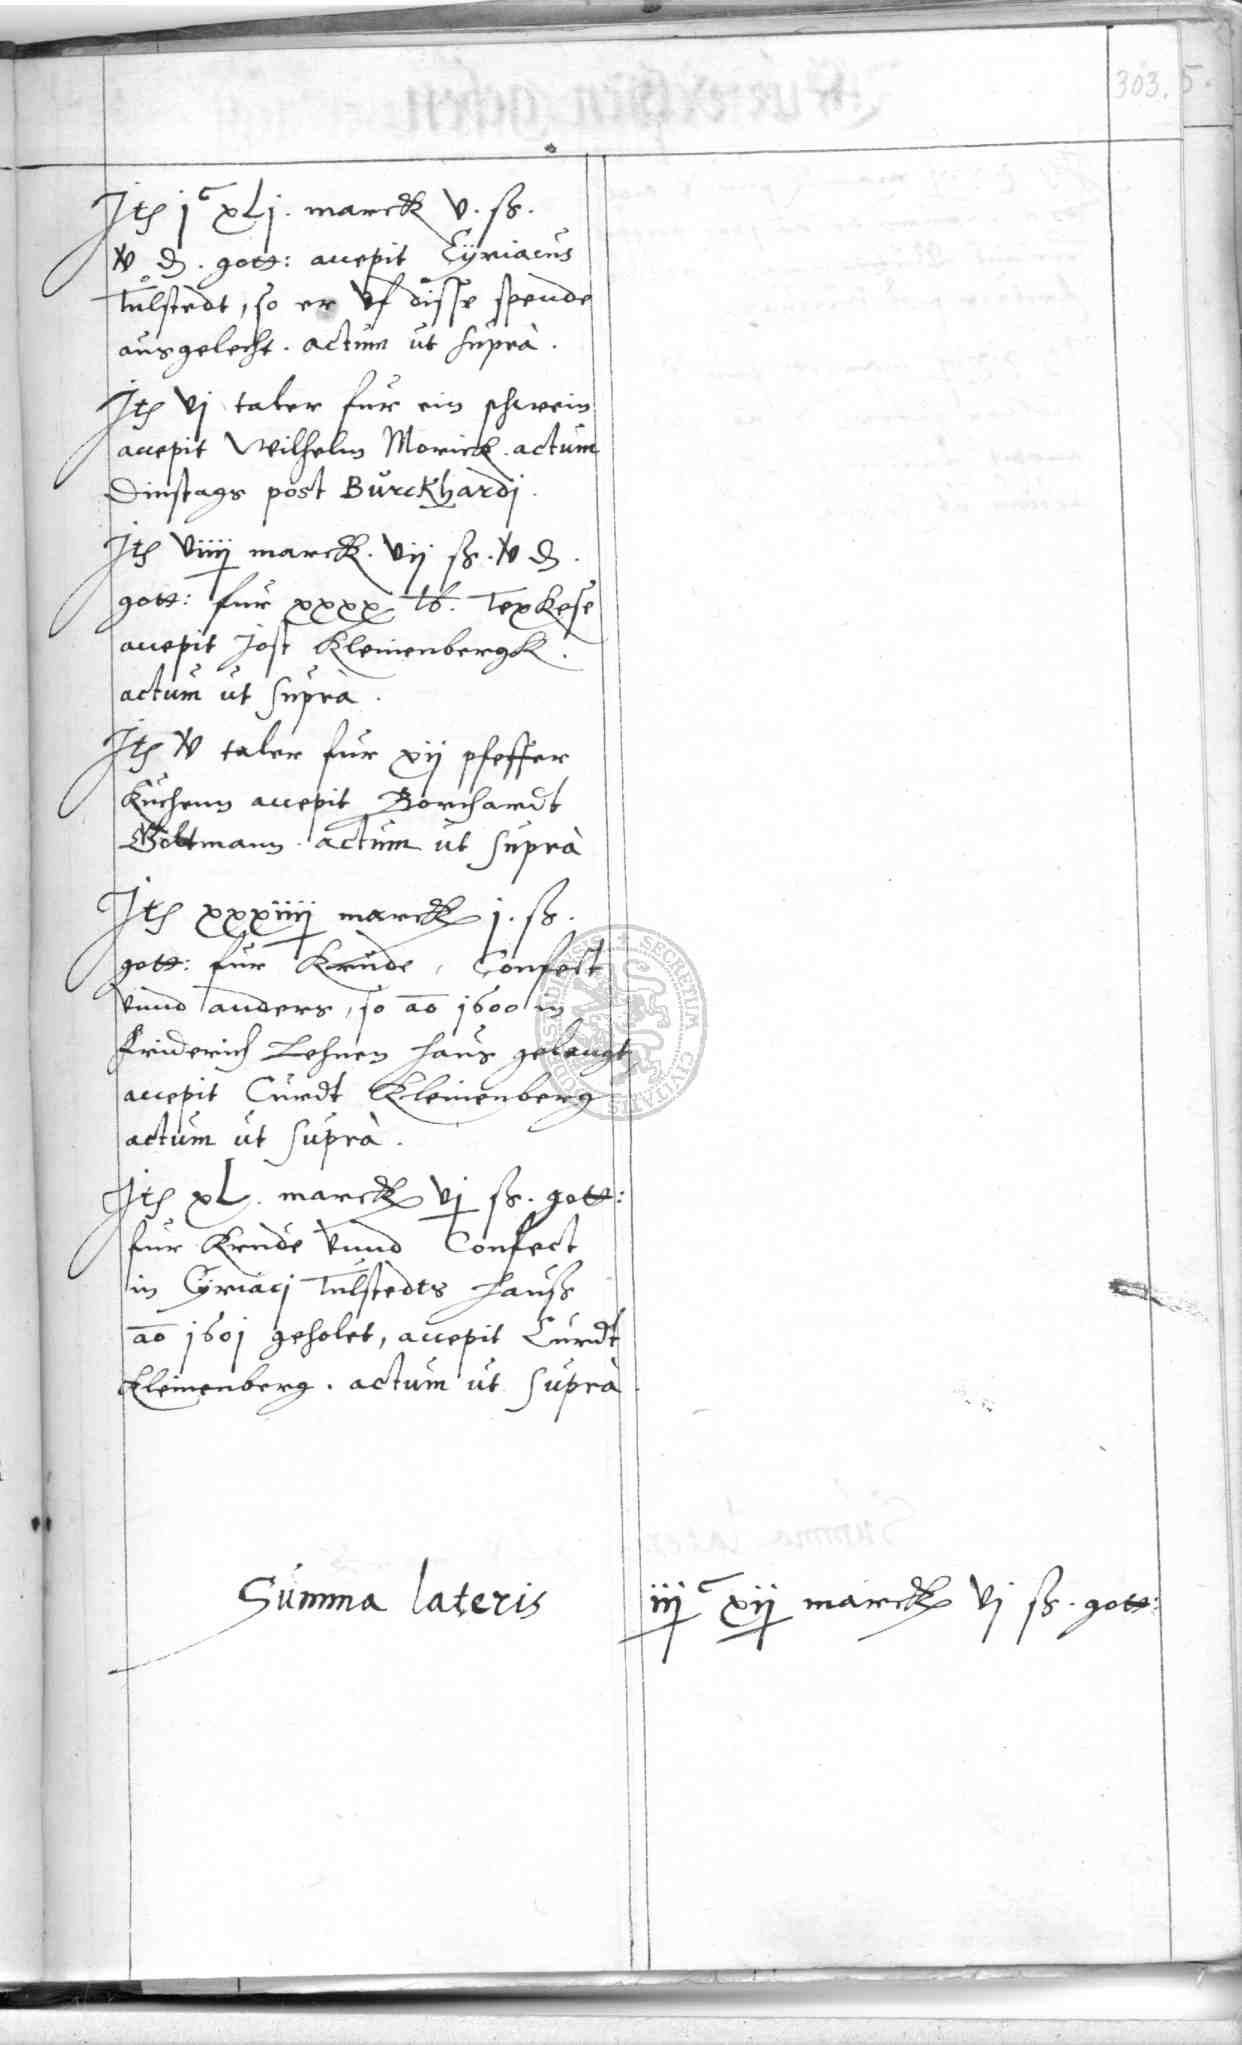 303. 5.
Jtem jc xLj. marck v. ß.
iv d. gott: accepit Cÿriacus
Tulstedt, so er vf disse spende
ausgelecht. actum ut suprà.
Jtem vj taler fur ein schwein
accepit Wilhelm Morick. actum
Dinstags post Burckhardj.
Jtem viiij marck. vij ß. iv d.
gott: fur xxxx lb. Texkese
accepit Jost Kleinenbergk.
actum ut suprà.
Jtem taler fur xij pfeffer
Kuchenn accepit Borchardt
actum ut suprà
Jtem xxxiiij marck j. ß.
gott: fur Krude, Confect
vnnd anders, so ao 1600 in
Friderich Lehnen haus gelangt,
accepit Curdt Kleinenberg
actum ut suprà.
Jtem xL. marck vj ß. gott:
fur Krude vnnd Confect
in Cÿriacj Tulstedts hauß
ao 1601 geholet, accepit Curdt
Kleinenberg. actum ut suprà
Summa lateris iijc xij marck vj ß. gott:
SECRETUM CIVITATIS